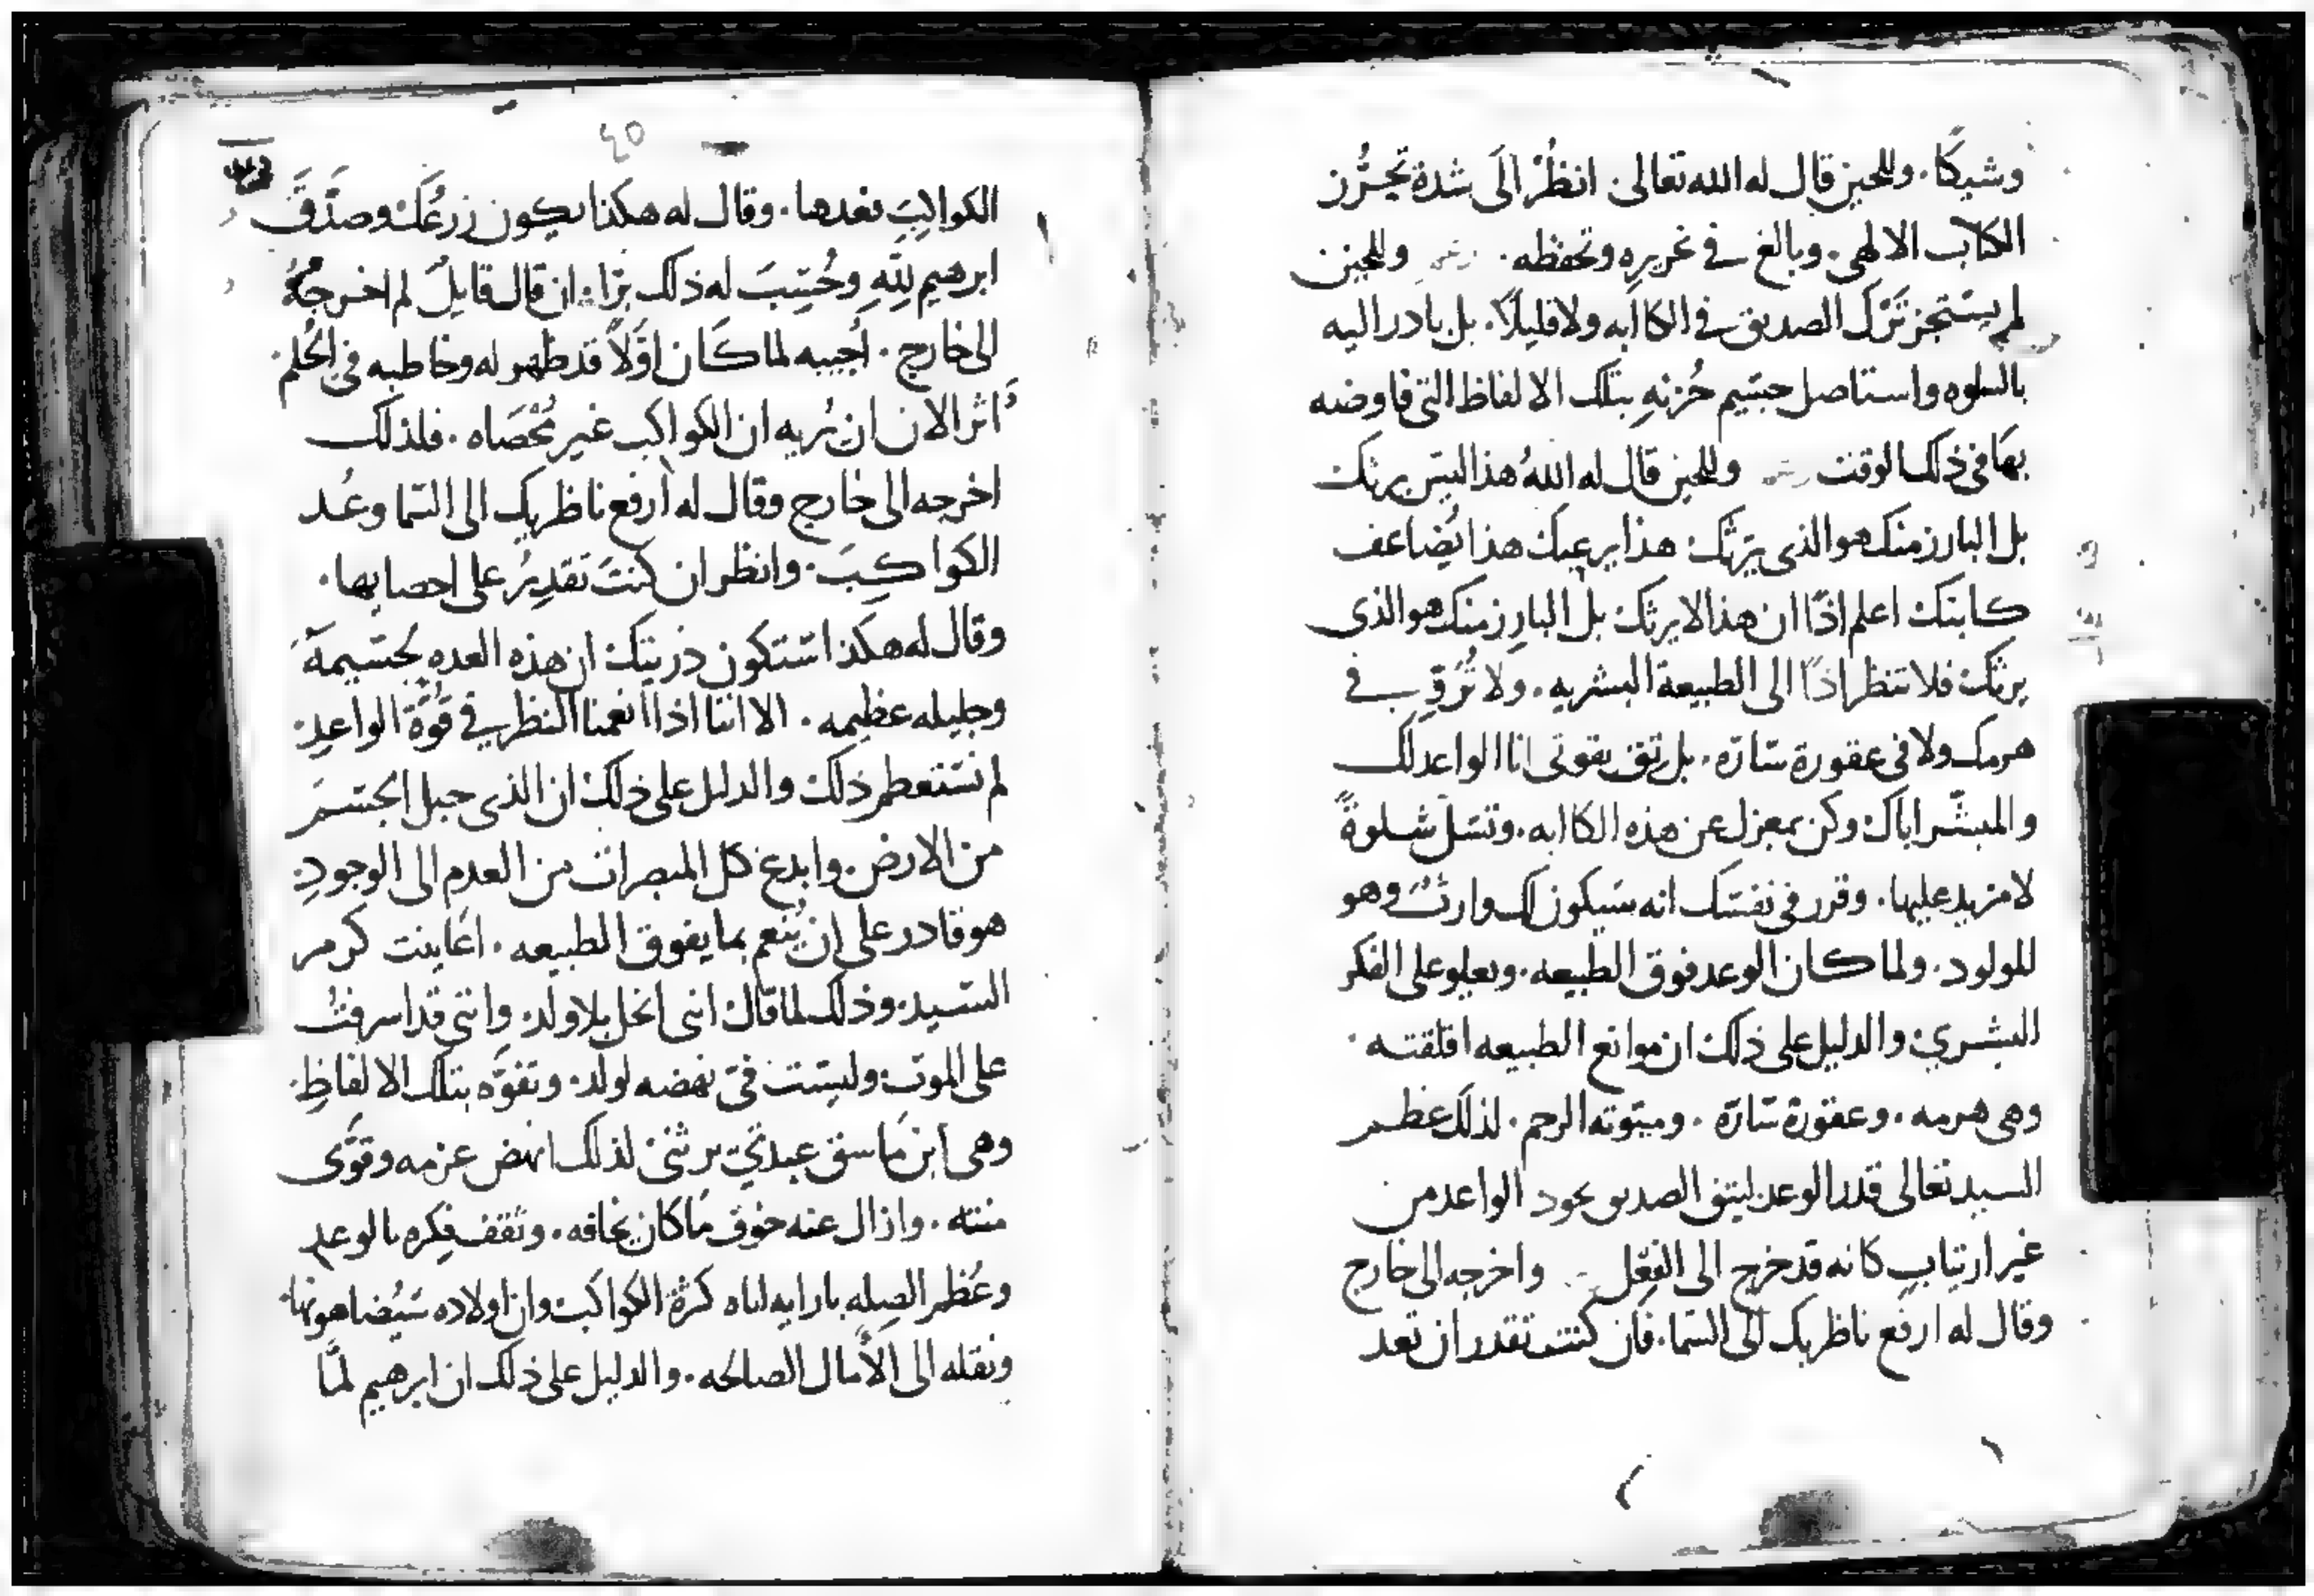 وشيكًا. وللحين قال له الله تعالى. انظُرْ الَى شدة تحرُّز
الكتاب الالهى. وبالغ في غريره وتحفظه. وللحين
لم يستجز تَرْك الصديق في الكاابه ولا قليلًا. بل بادر اليه
بالسلوه واستاصل جسيم حُزنِهِ بتلك الالفاظ التى فاوضه
بهَا في ذلك الوقت وللحين قال له اللهُ هذا ليس يرثك
بل البارز منك هو الذى يرثك هذا يرعبك هذا يُضاعف
كابتك اعلم اذًا ان هذا لا يرثك بل البارز منك هو الذى
يرثك فلا تنظر اذًا الى الطبيعة البشريه. ولا تُرَوِّ في
هرمك ولا في عقورة سارّه. بل ثق بقوتى انا الواعد لك
والمبشّر اياك وكن بمعزل عن هذه الكاابه. وتسَلّ سلوةً
لا مزيد عليها. وقرر في نفسك انه سيكون لك وارثٌ وهو
المولود. ولما كان الوعد فوق الطبيعه. ويعلو على الفكر
البشري والدليل على ذلك ان موانع الطبيعه اقلقته.
وهى هرمه. وعقورة سارّه. وميتوته الرحم. لذلك عظم
السيد تعالى قدر الوعد ليثق الصديق بجود الواعد من
غير ارتيابٍ كانه قد خرج الى الفِعْل واخرجه الى خارج
وقال له ارفع ناظريك الى السما. فان كنت تقدر ان تعد
٤٥
الكواكِبَ فعدها. وقال له هكذا يكون زرعُكَ وصدَّقَ
ابرهيم لِلَّهِ وحُسِبَ له ذلك برًّا. ان قال قايلٌ لم اخرجَهُ
الى خارج. اُجيبه لما كَان اوَّلاً قد ظهر له وخاطبه في الحُلم.
اثر الان ان يُريه ان الكواكب غير مُحْصَاه. فلذلك
اخرجه الى خارج وقال له ارفع ناظريك الى السما وعُد
الكواكِبَ. وانظر ان كنتَ تقدِرُ على احصايها.
وقال له هكذا ستكون ذريتك ان هذه العده لجسيمة
وجليله عظيمه. الا اننا اذا انعمنا النظر في قوَّة الواعدِ.
لم نستعظم ذلك والدليل على ذلك ان الذى جبل الجسم
من الارض. وابدع كل المبصرات من العدم الى الوجودِ.
هو قادر على ان يُنعم بما يفوق الطبيعه. اعَاينت كرم
السيد. وذلك لما قال اننى انحل بلا ولد. واننى قد اسرفتُ
على الموت. وليست فيّ نهضه لولد. وتفوَّه بتلك الالفاظِ.
وهى ابن مَاسق عبدتي يرثنى لذلك انهض عزمه وقوَّى
منته. وازال عنه خوف مَا كان يخافه. وثقف فِكره بالوعد
وعُظم الصِله بارايه اياه كثرة الكواكب وان اولاده سَيُضاهونها.
ونقله الى الأمال الصالحه. والدليل على ذلك ان ابرهيم لمَّا